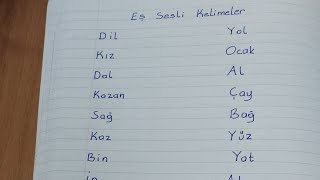 Eş Sesli Kelimeler
Dil Yol
Kız Ocak
Dal Al
Kazan Çay
Sağ Bağ
Kaz Yüz
Bin Yat
İn